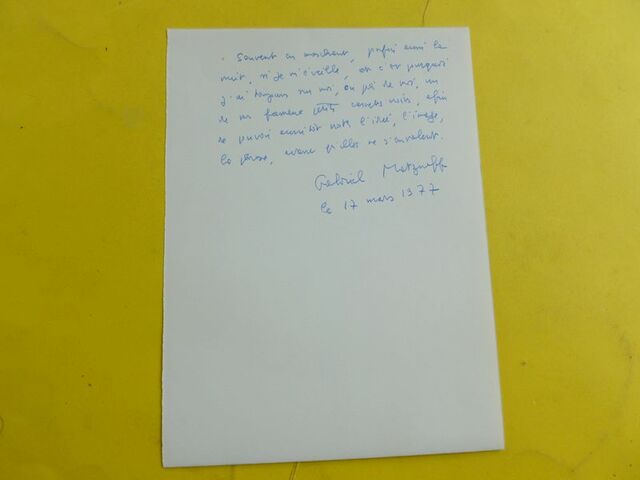 - Souvent en marchant, parfois aussi la
nuit, si je m'éveille, et c'est pourquoi
j'ai toujours sur moi, ou près de moi, un
de mes fameux petits carnets noirs, afin
de pouvoir aussitôt noter l'idée, l'image,
la phrase, avant qu'elles ne s'envolent.
Gabriel Matzneff
le 17 mars 1977